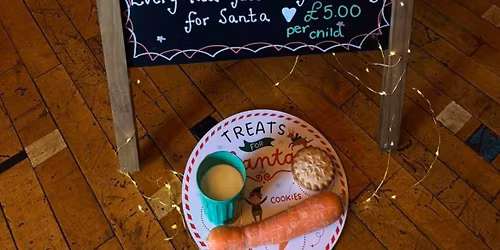 Every
for Santa £5.00
per child
TREATS
FOR
Santa
COOKIES